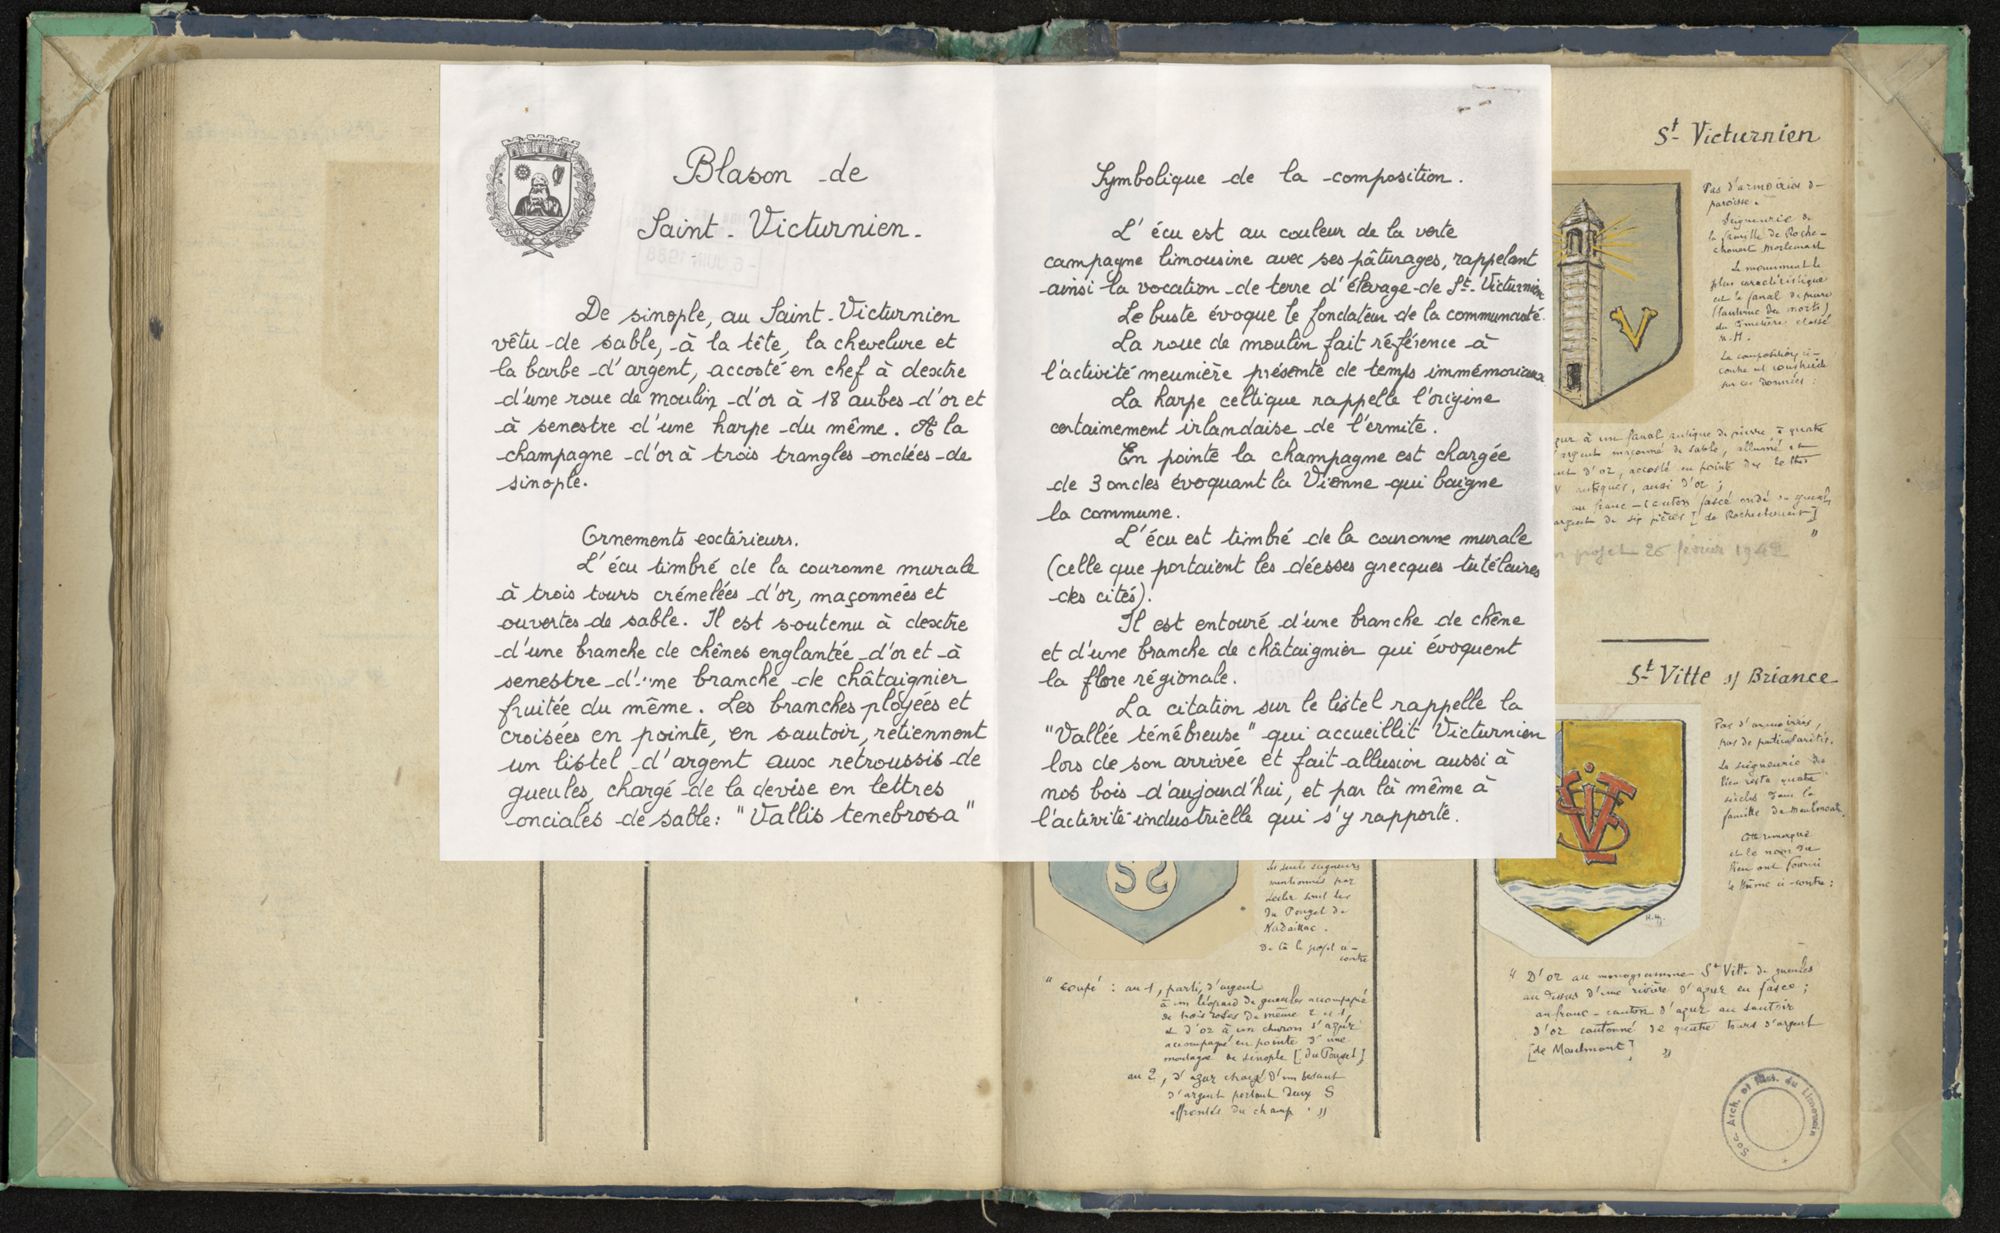 Blason de
Saint-Victurnien.
De sinople, au Saint-Victurnien
vêtu de sable, à la tête, la chevelure et
la barbe d'argent, accosté en chef à dextre
d'une roue de moulin d'or à 18 aubes d'or et
à senestre d'une harpe du même. A la
champagne d'or à trois trangles ondées de
sinople.
Ornements extérieurs.
L'écu timbré de la couronne murale
à trois tours crénelées d'or, maçonnées et
ouvertes de sable. Il est soutenu à dextre
d'une branche de chênes englantée d'or et à
senestre d'une branche de châtaignier
fruitée du même. Les branches ployées et
croisées en pointe, en sautoir, retiennent
un listel d'argent aux retroussis de
gueules, chargé de la devise en lettres
onciales de sable: "Vallis tenebrosa"
Symbolique de la composition.
L'écu est au couleur de la verte
campagne limousine avec ses pâturages, rappelant
ainsi la vocation de terre d'élevage de St-Victurnien
Le buste évoque le fondateur de la communauté.
La roue de moulin fait référence à
l'activité meunière présente de temps immémoriaux
La harpe celtique rappelle l'origine
certainement irlandaise de l'ermite.
En pointe la champagne est chargée
de 3 ondes évoquant la Vienne qui baigne
la commune.
L'écu est timbré de la couronne murale
(celle que portaient les déesses grecques tutélaires
des cités).
Il est entouré d'une branche de chêne
et d'une branche de châtaignier qui évoquent
la flore régionale.
La citation sur le listel rappelle la
"Vallée ténébreuse" qui accueillit Victurnien
lors de son arrivée et fait allusion aussi à
nos bois d'aujourd'hui, et par là même à
l'activité industrielle qui s'y rapporte.
St Victurnien
Pas d'armoiries de
paroisse.
Seigneurie de
la famille de Roche-
chouart Mortemart
Le monument le
plus caractéristique
est le fanal de pierre
(lanterne des morts)
du cimetière classé
M.H.
La composition ci-
contre est construite
sur ces données :
V
azur à un fanal antique de pierre à quatre
d'argent maçonné de sable, allumé et
d'or, accosté en pointe des lettres
V antiques, aussi d'or ;
au franc-canton fascé ondé de gueules
argent de six pièces [de Rochechouart]
"
projet 26 février 1942
St Vitte s/ Briance
Pas d'armoiries,
pas de particularités.
La seigneurie du
lieu resta quatre
siècles dans la
famille de Maulmont.
Cette remarque
et le nom du
lieu ont fourni
le thème ci-contre :
H.H.
" D'or au monogramme St Vitte de gueules
au dessus d'une rivière d'azur en fasce ;
au franc-canton d'azur au sautoir
d'or cantonné de quatre tours d'argent
[de Maulmont] "
SS
les seuls seigneurs
mentionnés par
Lecler sont les
du Pouget de
Nadaillac.
De là le projet ci-
contre
" coupé : au 1, parti, d'argent
à un léopard de gueules accompagné
de trois roses de même 2 et 1,
et d'or à un chevron d'azur
accompagné en pointe d'une
montagne de sinople [du Pouget]
au 2, d'azur chargé d'un besant
d'argent portant deux S
affrontés du champ. "
Soc. Arch. et Hist. du Limousin